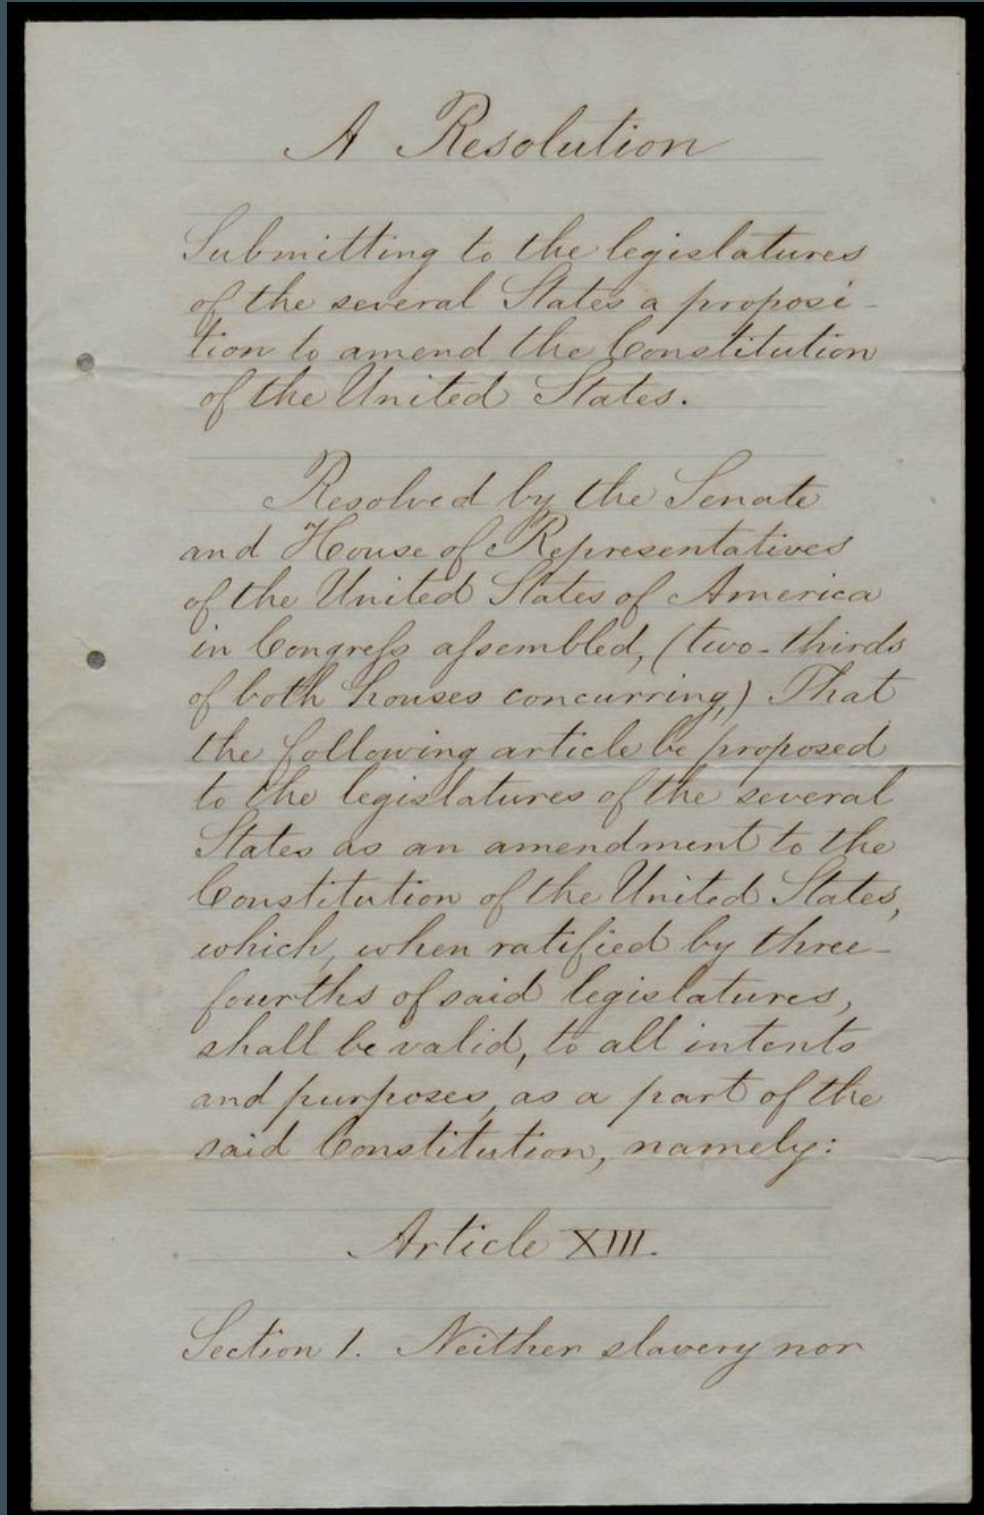 A Resolution
Submitting to the legislatures
of the several States a proposi-
tion to amend the Constitution
of the United States.
Resolved by the Senate
and House of Representatives
of the United States of America
in Congreſs aſsembled, (two-thirds
of both houses concurring,) That
the following article be proposed
to the legislatures of the several
States as an amendment to the
Constitution of the United States,
which, when ratified by three-
fourths of said legislatures,
shall be valid, to all intents
and purposes, as a part of the
said Constitution, namely:
Article XIII.
Section 1. Neither slavery nor